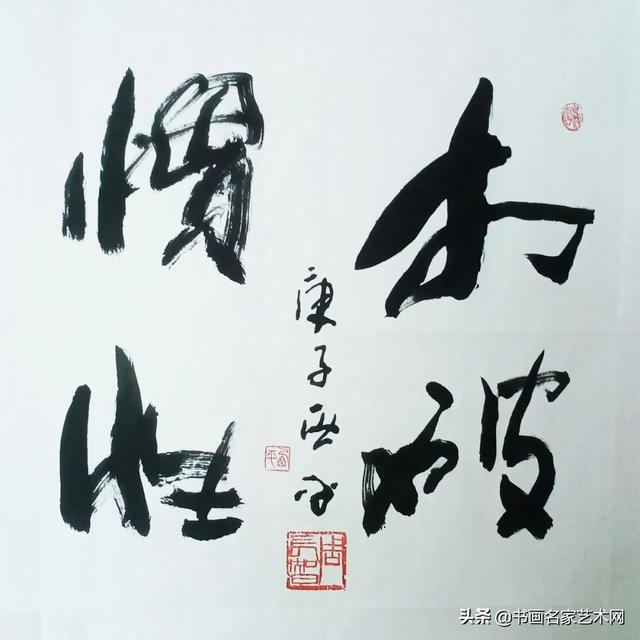 打破
慣性
庚子
头条 @书画名家艺术网